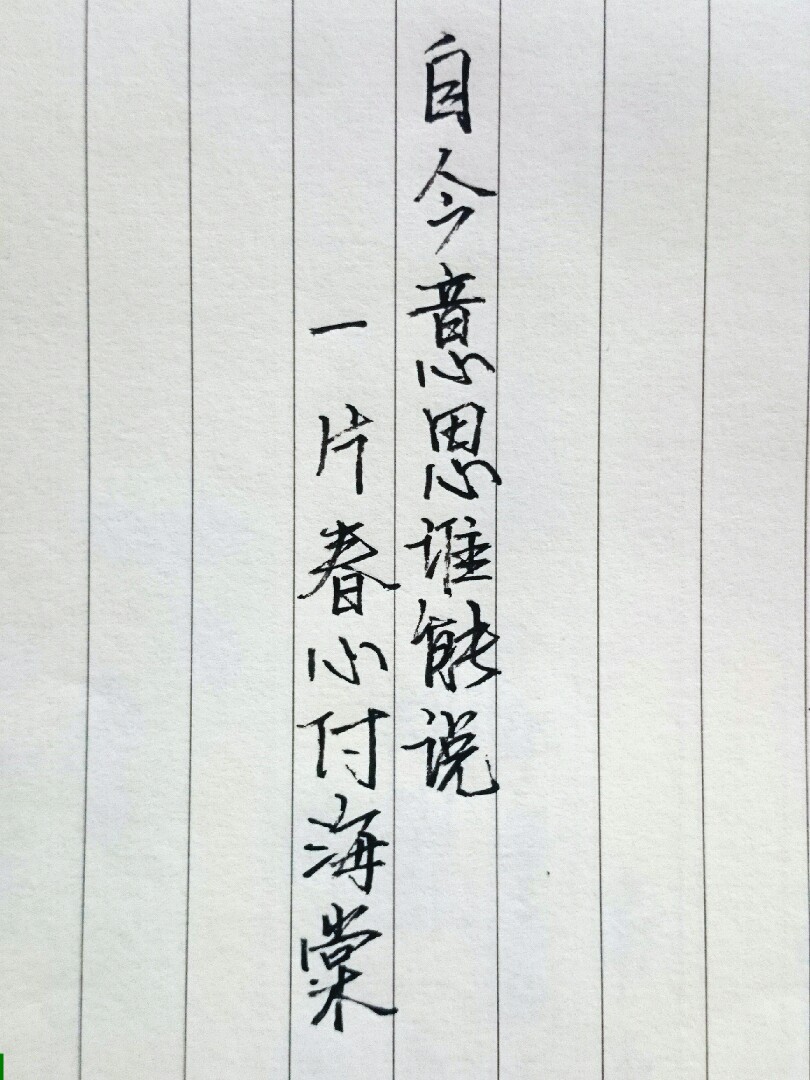 自今意思谁能说
一片春心付海棠